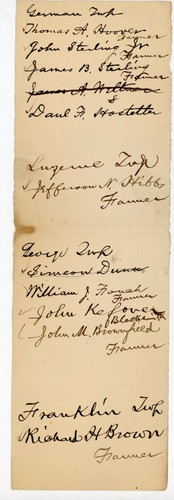 German Twp
Thomas A. Hoover
Farmer
John Sterling Jr
Farmer
James B. Sterling
Farmer
James A Hellman
&
Paul F. Hostetter
Eugene Twp
Jefferson N. Hibbs
Farmer
George Twp
Simeon Dunn
William J. Farmer
John Kefover
Blacksmith
John M. Brownfield
Farmer
Franklin Twp
Richard H Brown
Farmer